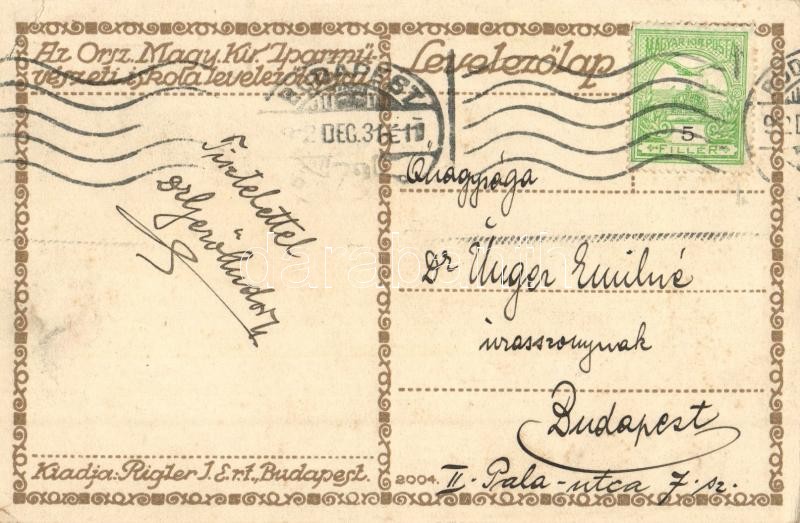 Az Orsz. Magy. Kir. Iparmű-
vészeti iskola levelezőlapja
Levelezőlap
MAGYAR KIR. POSTA
5
FILLER
BUDAPEST
DEC. 31
Tisztelettel
Dr Gerő Nándor
Őnagysága
Dr Unger Emilné
úrasszonynak
Budapest
II. Pala-utca 7. sz.
Kiadja: Rigler J. E. r.t., Budapest.
2004.
darabanth